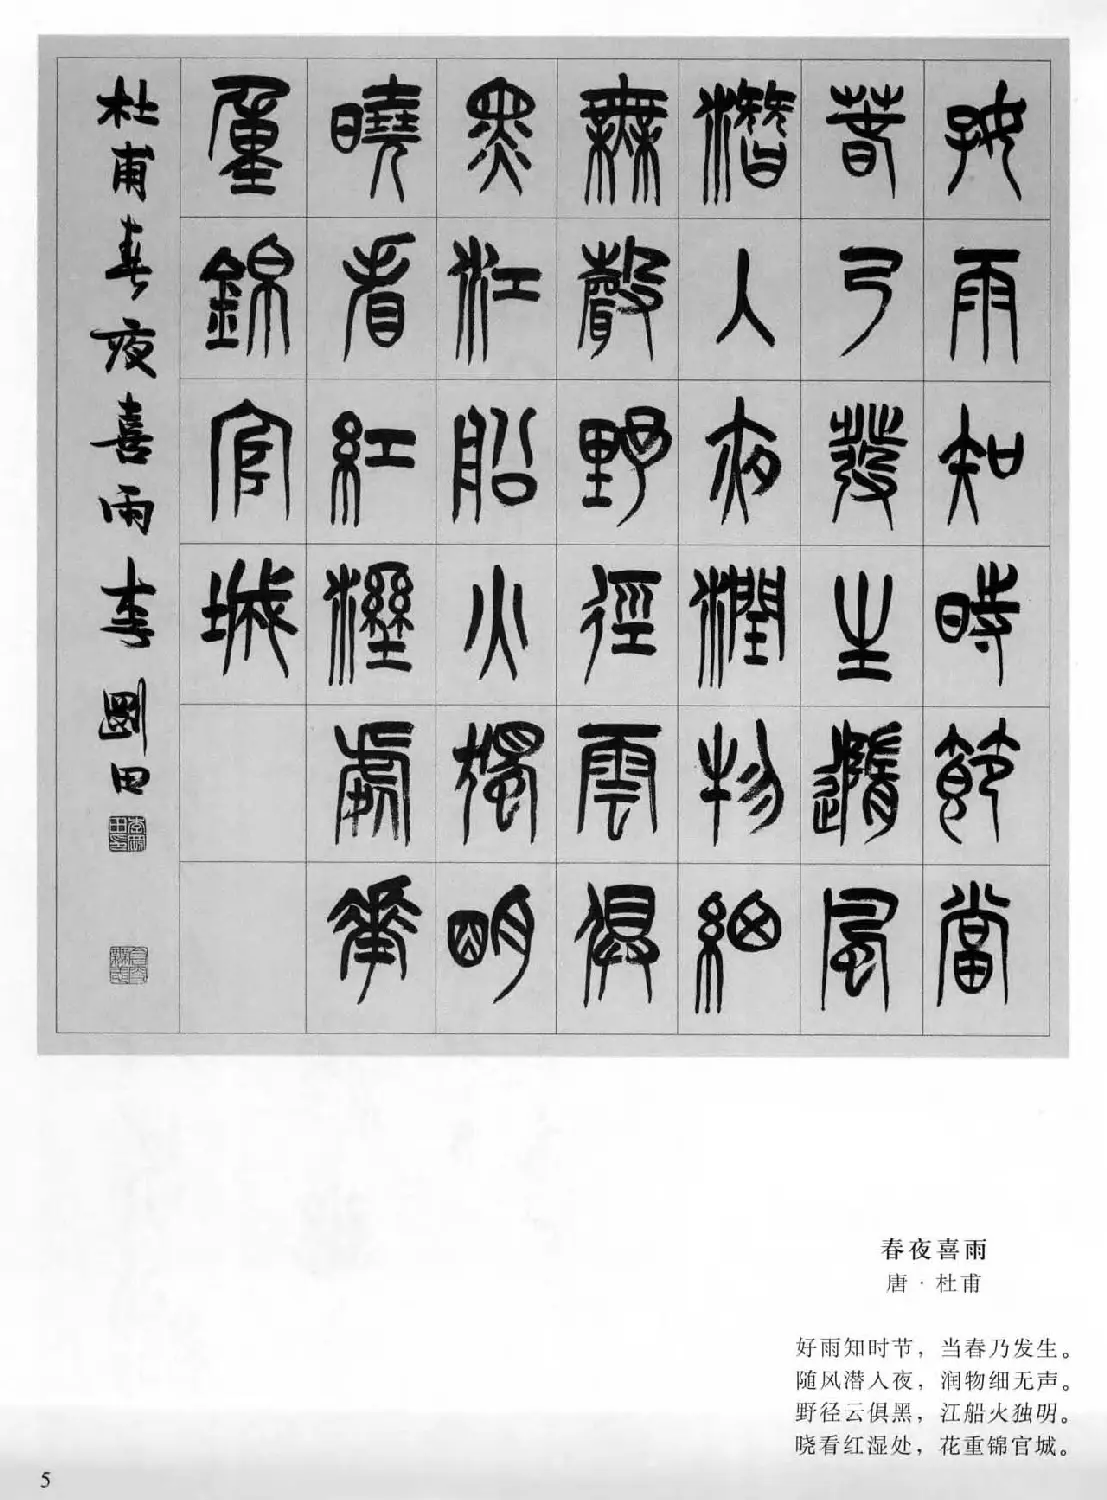 好雨知時節當
萅乃發生隨風
潛入夜潤物細
無聲野徑雲俱
黑江船火獨明
曉看紅溼處華
重錦官城
杜甫春夜喜雨李剛田
春夜喜雨
唐·杜甫
好雨知时节，当春乃发生。
随风潜入夜，润物细无声。
野径云俱黑，江船火独明。
晓看红湿处，花重锦官城。
5